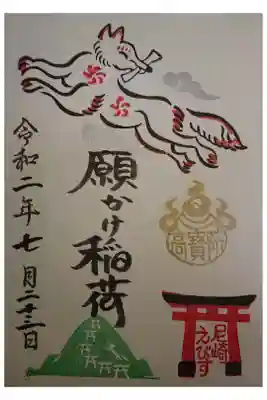 願かけ稲荷
尼崎
えびす
令和二年七月二十三日